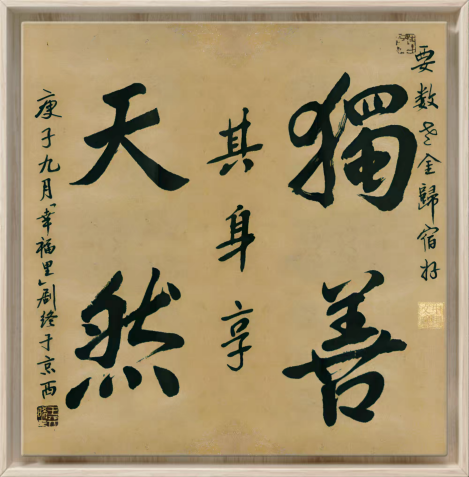 要数老金歸宿好
獨善
其身享
天然
庚子九月幸福里劇终于京西